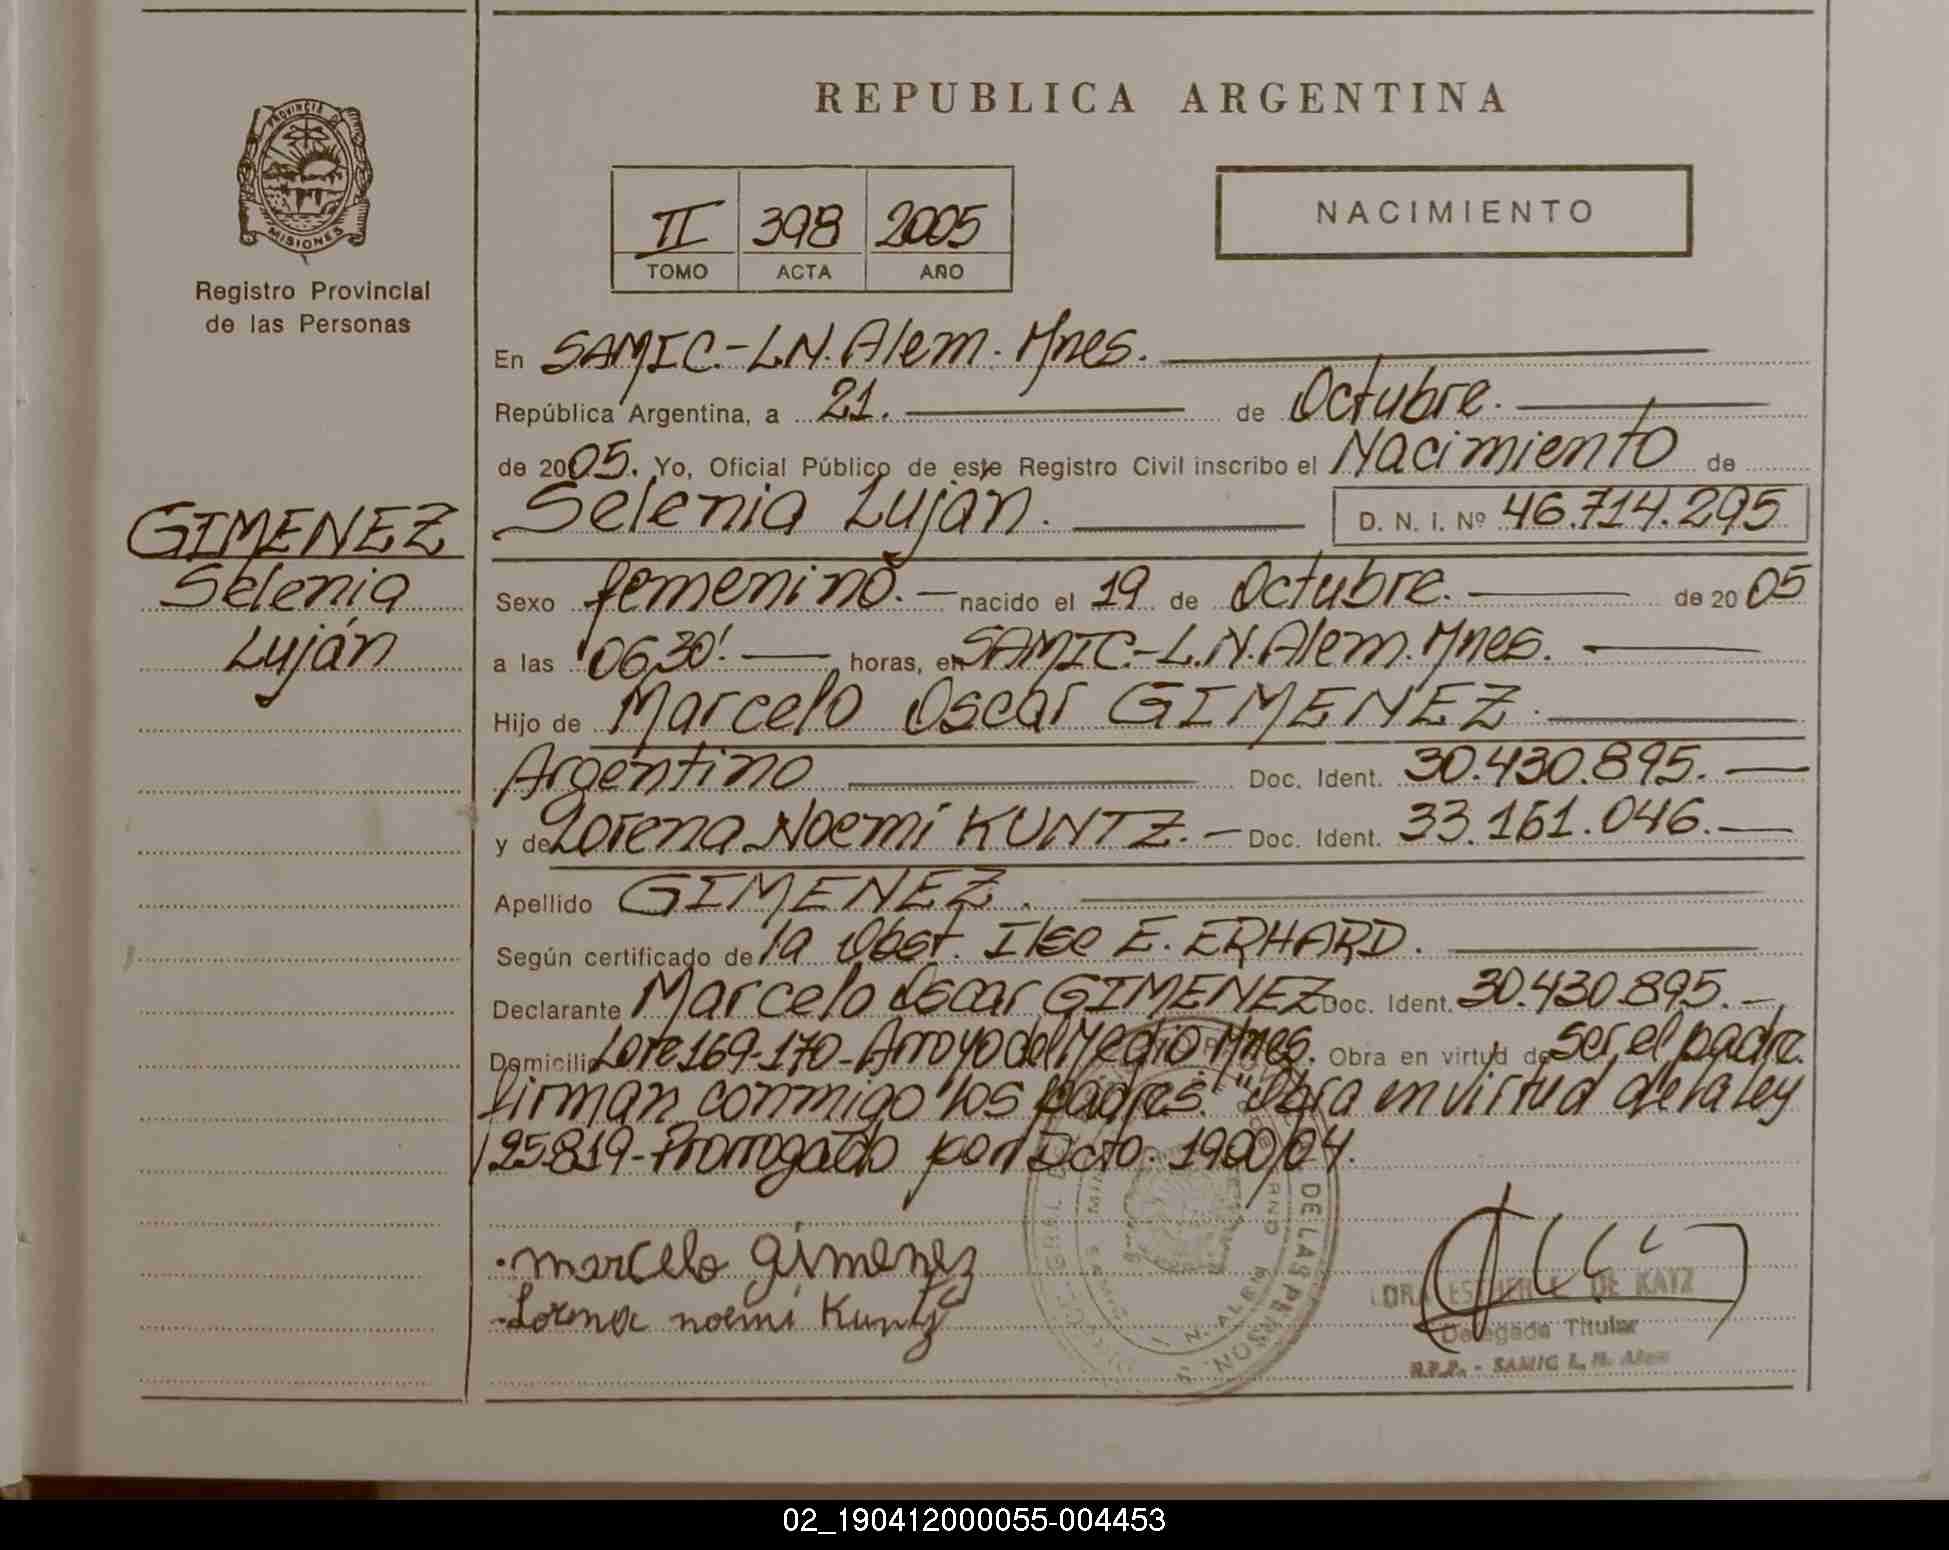 REPUBLICA ARGENTINA
PROVINCIA DE
MISIONES
Registro Provincial
de las Personas
II 398 2005
TOMO ACTA AÑO
NACIMIENTO
GIMENEZ
Selenia
Luján
En SAMIC.-L.N. Alem. Mnes.
República Argentina, a 21. de Octubre.
de 2005. Yo, Oficial Público de este Registro Civil inscribo el Nacimiento de
Selenia Luján. D. N. I. Nº 46.714.295
Sexo femenino. nacido el 19 de Octubre. de 2005
a las 06,30'. horas, en SAMIC.-L.N. Alem. Mnes.
Hijo de Marcelo Oscar GIMENEZ.
Argentino Doc. Ident. 30.430.895.
y de Lorena Noemí KUNTZ. Doc. Ident. 33.161.046.
Apellido GIMENEZ.
Según certificado de la Obst. Ilse E. ERHARD.
Declarante Marcelo Oscar GIMENEZ Doc. Ident. 30.430.895.
Domicilio Lote 169-170-Arroyo del Medio Mnes. Obra en virtud de ser el padre.
firman conmigo los padres. "Obra en virtud de la ley
25819-Prorrogado por Dcto. 1900/04.
marcelo gimenez
Lorena noemi Kuntz
DE LAS PERSONAS
L. N. ALEM
DE KATZ
Delegada Titular
R.P.P. - SAMIC L. N. Alem
02_190412000055-004453